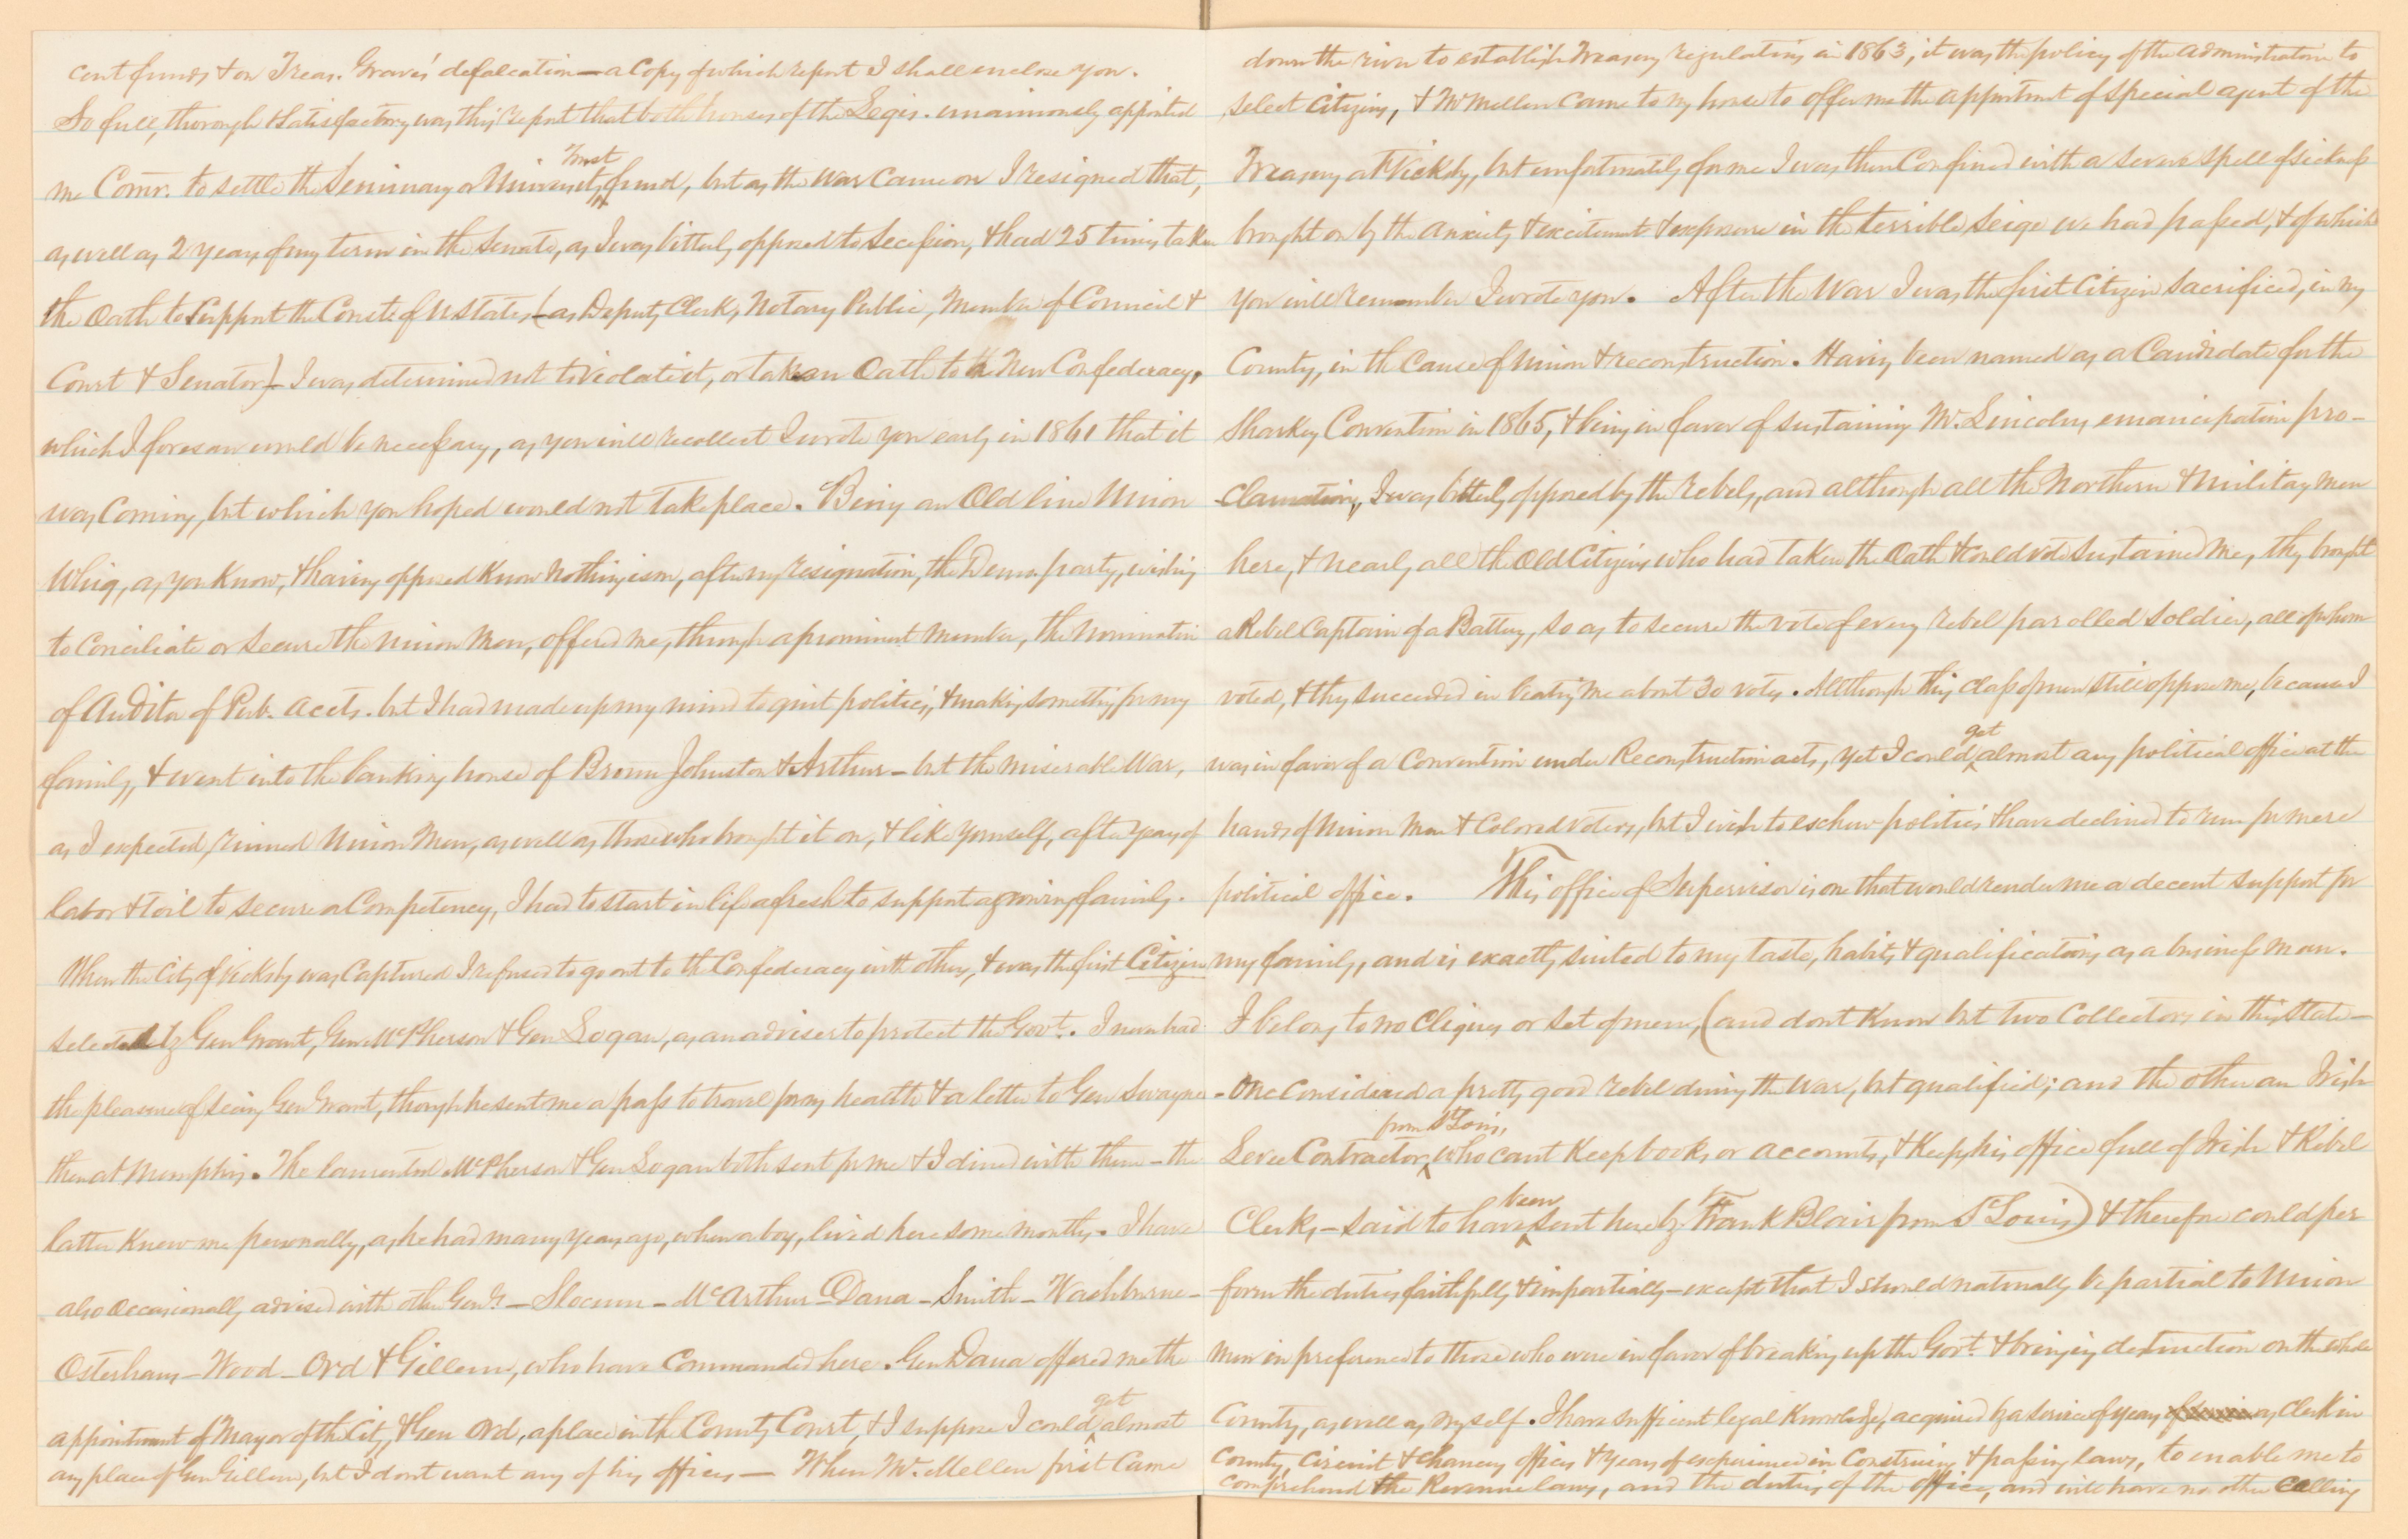 cent funds & on Treas. Graves' defalcation — a Copy of which report I shall enclose you.
So full, thorough & satisfactory was this report that both houses of the Legis. unanimously appointed
me Comr. to settle the Seminary or University Trust fund, but as the War came on I resigned that,
as well as 2 years of my term in the Senate, as I was bitterly opposed to Secession, & had 25 times taken
the Oath to Support the Const. of U States, (as Deputy Clerk, Notary Public, Member of Council &
Court & Senator) — I was determined not to violate it, or take an Oath to the New Confederacy,
which I foresaw would be necessary, as you will recollect I wrote you early in 1861 that it
was Coming, but which you hoped would not take place. Being an Old line Union
Whig, as you Know, & having opposed Know Nothingism, after my resignation, the Dem. party, wishing
to Conciliate or Secure the Union Men, offered me, through a prominent member, the nomination
of Auditor of Pub. Accts. but I had made up my mind to quit politics, & making something for my
family, & went into the banking house of Brown Johnston & Arthur — but the miserable War,
as I expected, ruined Union Men, as well as those who brought it on, & like yourself, after years of
labor & toil to secure a Competency, I had to start in life afresh to support a growing family.
When the City of Vicksbg was Captured I refused to go out to the Confederacy with others, & was the first Citizen
selected by Gen Grant, Gen McPherson & Gen Logan, as an adviser to protect the Govt. I never had
the pleasure of seeing Gen Grant, though he sent me a pass to travel for my health & a letter to Gen Swayne
then at Memphis. The lamented McPherson & Gen Logan both sent for me & I dined with them — the
latter knew me personally, as he had many years ago, when a boy, lived here some months. I have
also occasionally advised with other Genls — Slocum — McArthur — Dana — Smith — Washburne —
Osterhaus — Wood — Ord & Gillem, who have Commanded here. Gen Dana offered me the
appointment of Mayor of the City, & Gen Ord, a place in the County Court, & I suppose I could get almost
any place of Gen Gillem, but I dont want any of his offices — When Mr. Mellen first Came
down the river to establish Treasury regulations in 1863, it was the policy of the Administration to
select Citizens, & Mr Mellen came to my house to offer me the appointment of Special agent of the
Treasury at Vicksbg, but unfortunately for me I was then Confined with a severe spell of sickness
brought on by the anxiety & excitement & exposure in the terrible Seige we had passed, & of which
you will remember I wrote you. After the War I was the first Citizen sacrificed, in my
County, in the Cause of Union & reconstruction. Having been named as a Candidate for the
Sharkey Convention in 1865, & being in favor of sustaining Mr. Lincolns emancipation pro-
clamations, I was bitterly opposed by the rebels, and although all the Northern & Military men
here, & nearly all the Old Citizens who had taken the Oath & could vote sustained me, they brought
a Rebel Captain of a Battery, so as to secure the vote of every rebel parolled soldier, all of whom
voted, & they succeeded in beating me about 30 votes. Although this class of men still oppose me, because I
was in favor of a Convention under Reconstruction acts, yet I could get almost any political office at the
hands of Union Men & Colored voters, but I wish to eschew politics & have declined to run for mere
political office. This office of Supervisor is one that would render me a decent support for
my family, and is exactly suited to my taste, habits & qualifications as a business man.
I belong to no Cliques or set of men, (and dont Know but two Collectors in this state —
— One considered a pretty good rebel during the War, but qualified; and the other an Irish
Levee Contractor, from St Louis, who cant Keep books or accounts, & Keeps his office full of Irish & Rebel
Clerks — said to have been sent here by Frank Blair from St Louis) & therefore could per
form the duties faithfully & impartially — except that I should naturally be partial to Union
Men in preference to those who were in favor of breaking up the Govt. & bringing destruction on the whole
Country, as well as myself. I have sufficient legal Knowledge, acquired by a service of years as Clerk in
County, Circuit & Chancery offices & years of experience in Construing & passing laws, to enable me to
comprehend the Revenue laws, and the duties of the office, and will have no other calling